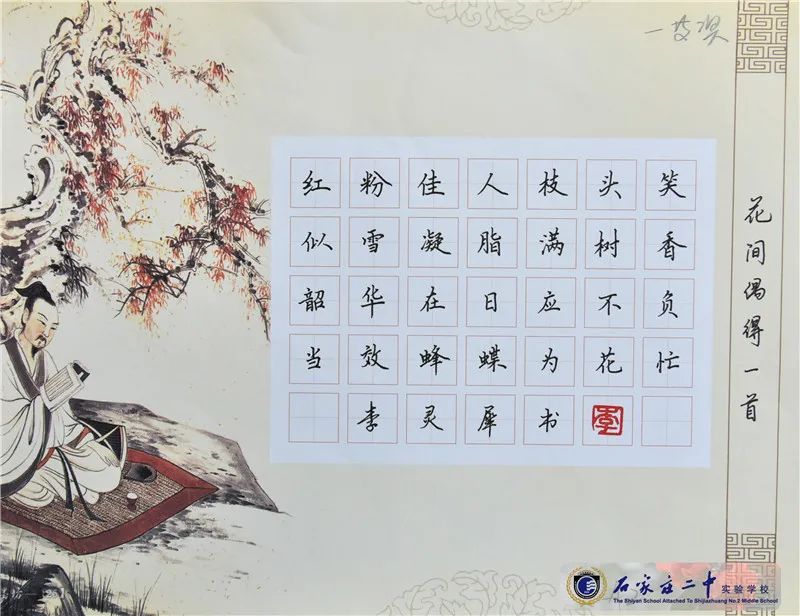 红粉佳人枝头笑
似雪凝脂满树香
韶华在日应不负
当效蜂蝶为花忙
李灵犀书
李
花间偶得一首
石家庄二中实验学校
The Shiyan School Attached To Shijiazhuang No.2 Middle School